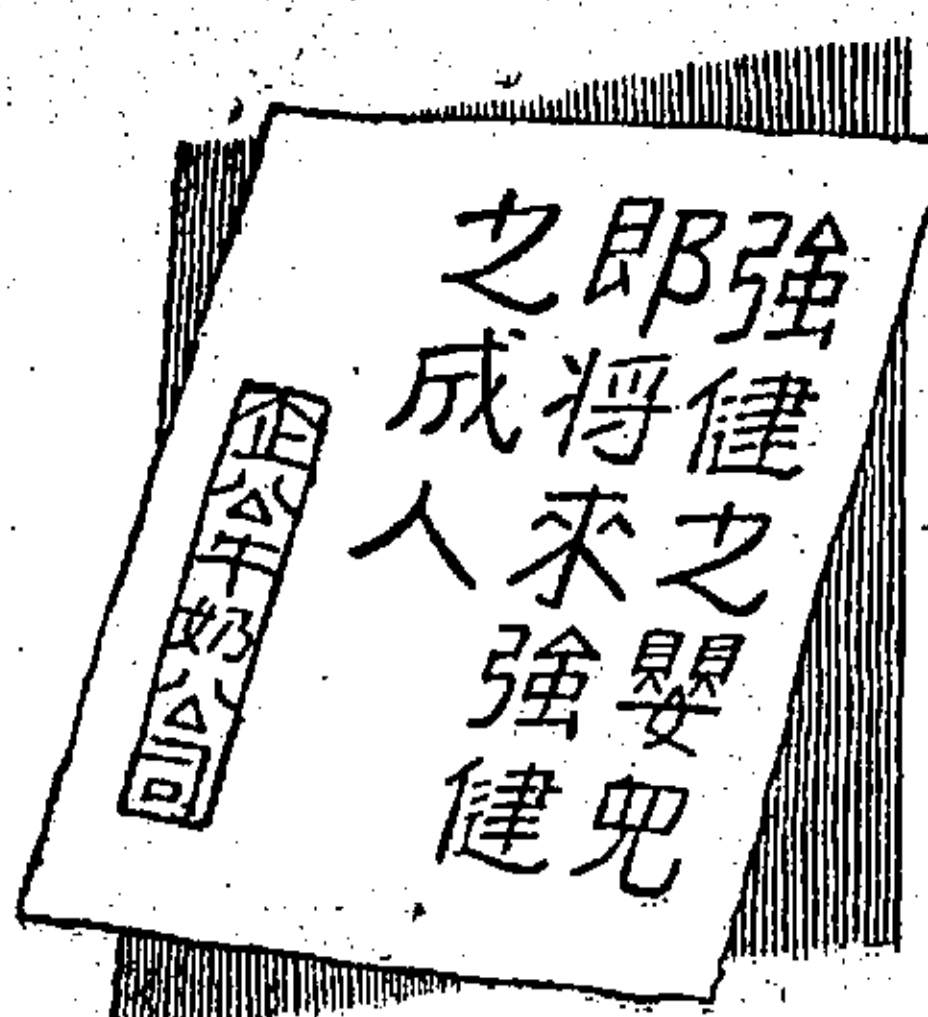 強健之嬰兒
即将來強健
之成人
企公牛奶公司